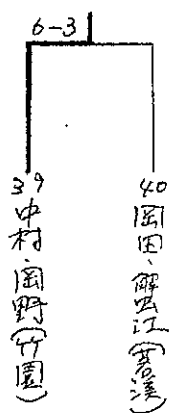 6-3
39
中村・岡野(竹園)
40
岡田・蟹江(茗溪)